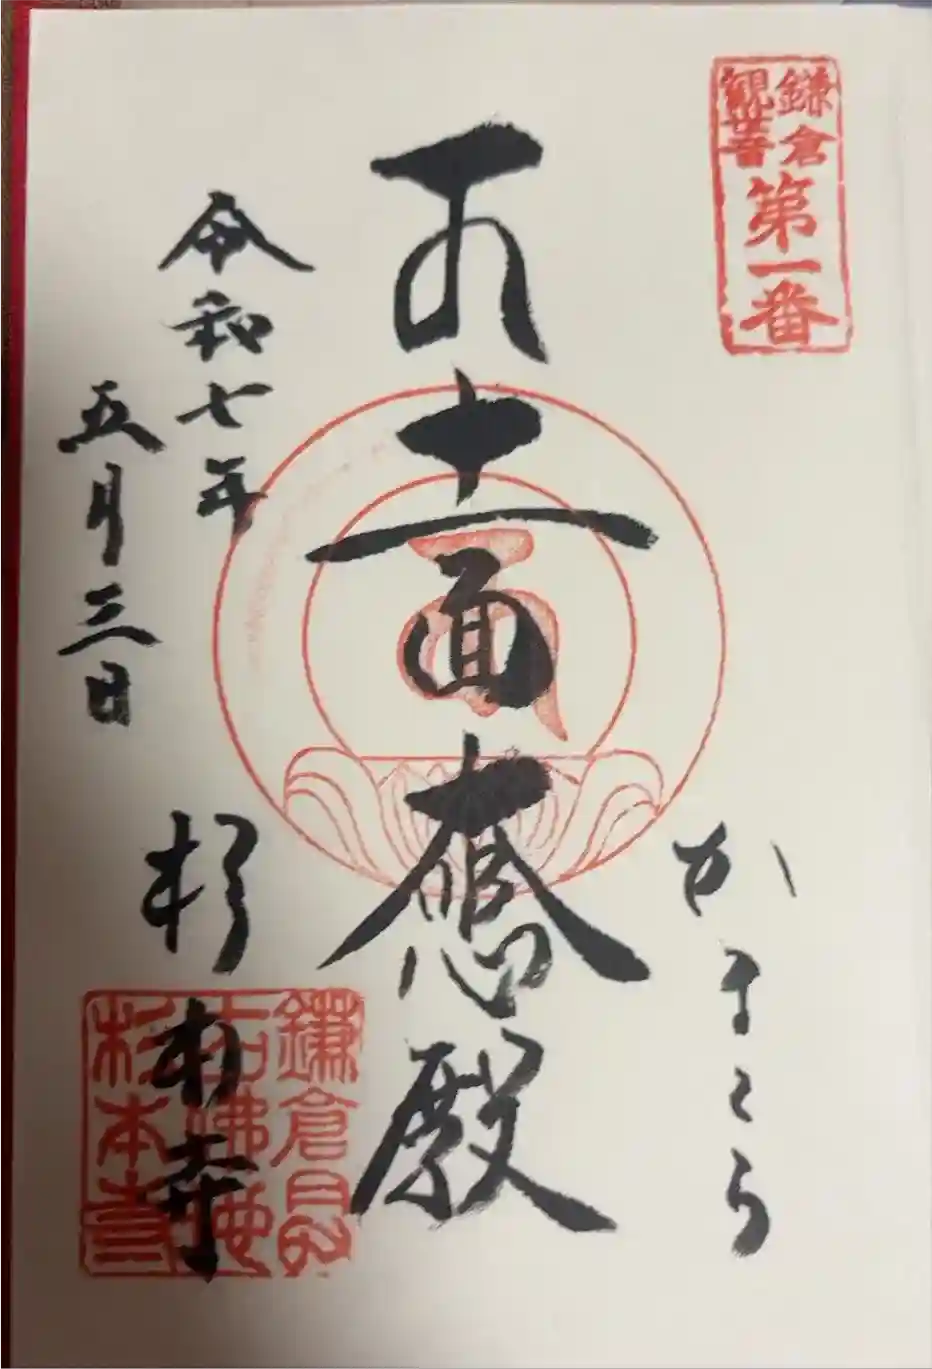 鎌倉
観世音
第一番
かまくら
十一面大悲殿
令和七年
五月三日
杉本寺
鎌倉最
古佛地
杉本寺